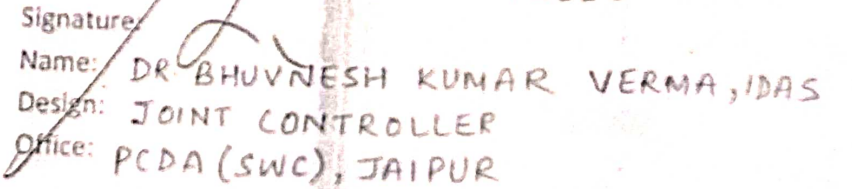 Signature:
Name: DR BHUVNESH KUMAR VERMA, IDAS
Design: JOINT CONTROLLER
Office: PCDA (SWC), JAIPUR